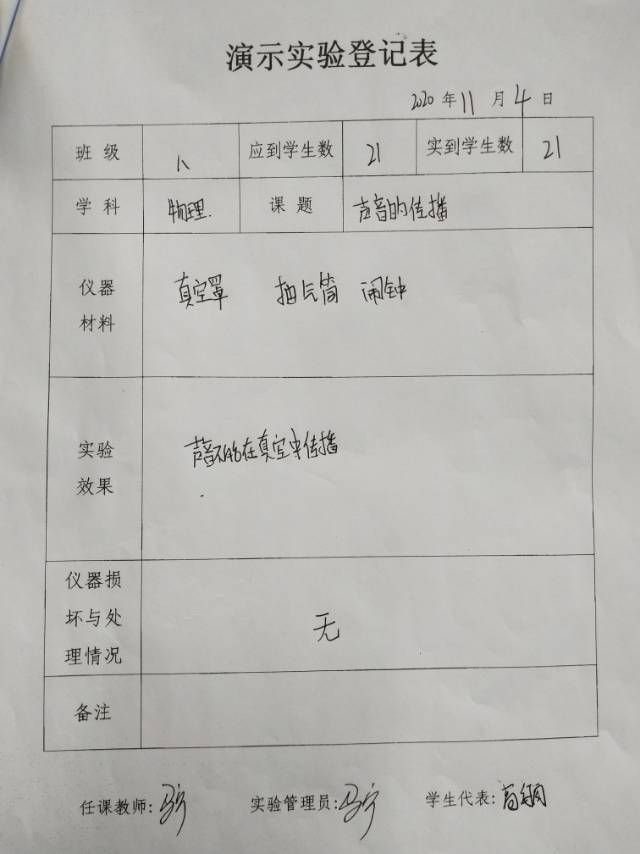 演示实验登记表
2020 年 11 月 4 日
班级 八 应到学生数 21 实到学生数 21
学科 物理. 课题 声音的传播
仪器材料 真空罩 抽气筒 闹钟
实验效果 声音不能在真空中传播
仪器损坏与处理情况 无
备注
任课教师: 马宁 实验管理员: 马宁 学生代表: